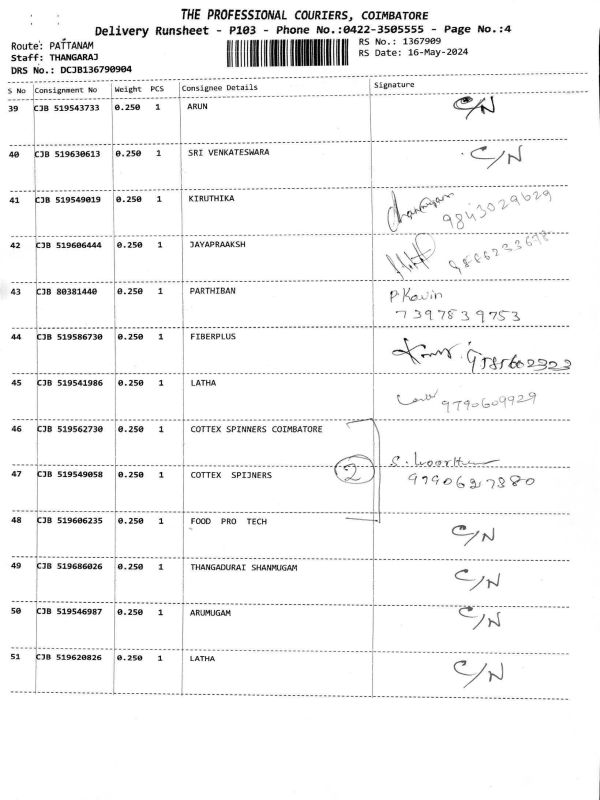 THE PROFESSIONAL COURIERS, COIMBATORE
Delivery Runsheet - P103 - Phone No.:0422-3505555 - Page No.:4
Route: PATTANAM
RS No.: 1367909
Staff: THANGARAJ
RS Date: 16-May-2024
DRS No.: DCJB136790904
S No Consignment No Weight PCS Consignee Details Signature
39 CJB 519543733 0.250 1 ARUN C/N
40 CJB 519630613 0.250 1 SRI VENKATESWARA C/N
41 CJB 519549019 0.250 1 KIRUTHIKA
9843029629
42 CJB 519606444 0.250 1 JAYAPRAAKSH
43 CJB 80381440 0.250 1 PARTHIBAN P Kavin
7397839753
44 CJB 519586730 0.250 1 FIBERPLUS
45 CJB 519541986 0.250 1 LATHA
9790609929
46 CJB 519562730 0.250 1 COTTEX SPINNERS COIMBATORE
47 CJB 519549058 0.250 1 COTTEX SPIJNERS 2
9790627880
48 CJB 519606235 0.250 1 FOOD PRO TECH C/N
49 CJB 519686026 0.250 1 THANGADURAI SHANMUGAM C/N
50 CJB 519546987 0.250 1 ARUMUGAM C/N
51 CJB 519620826 0.250 1 LATHA C/N